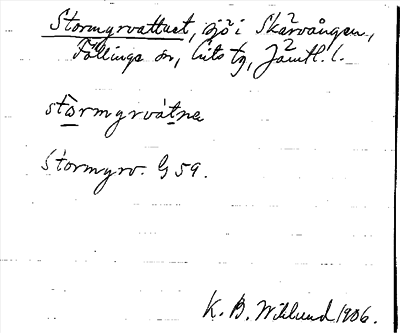 Stormyrvattnet, sjö i Skärvången,
Föllinge sn, Lits tg, Jämtl. l.
stormyrvátna
Stormyrv. G 59.
K. B. Wiklund 1906.